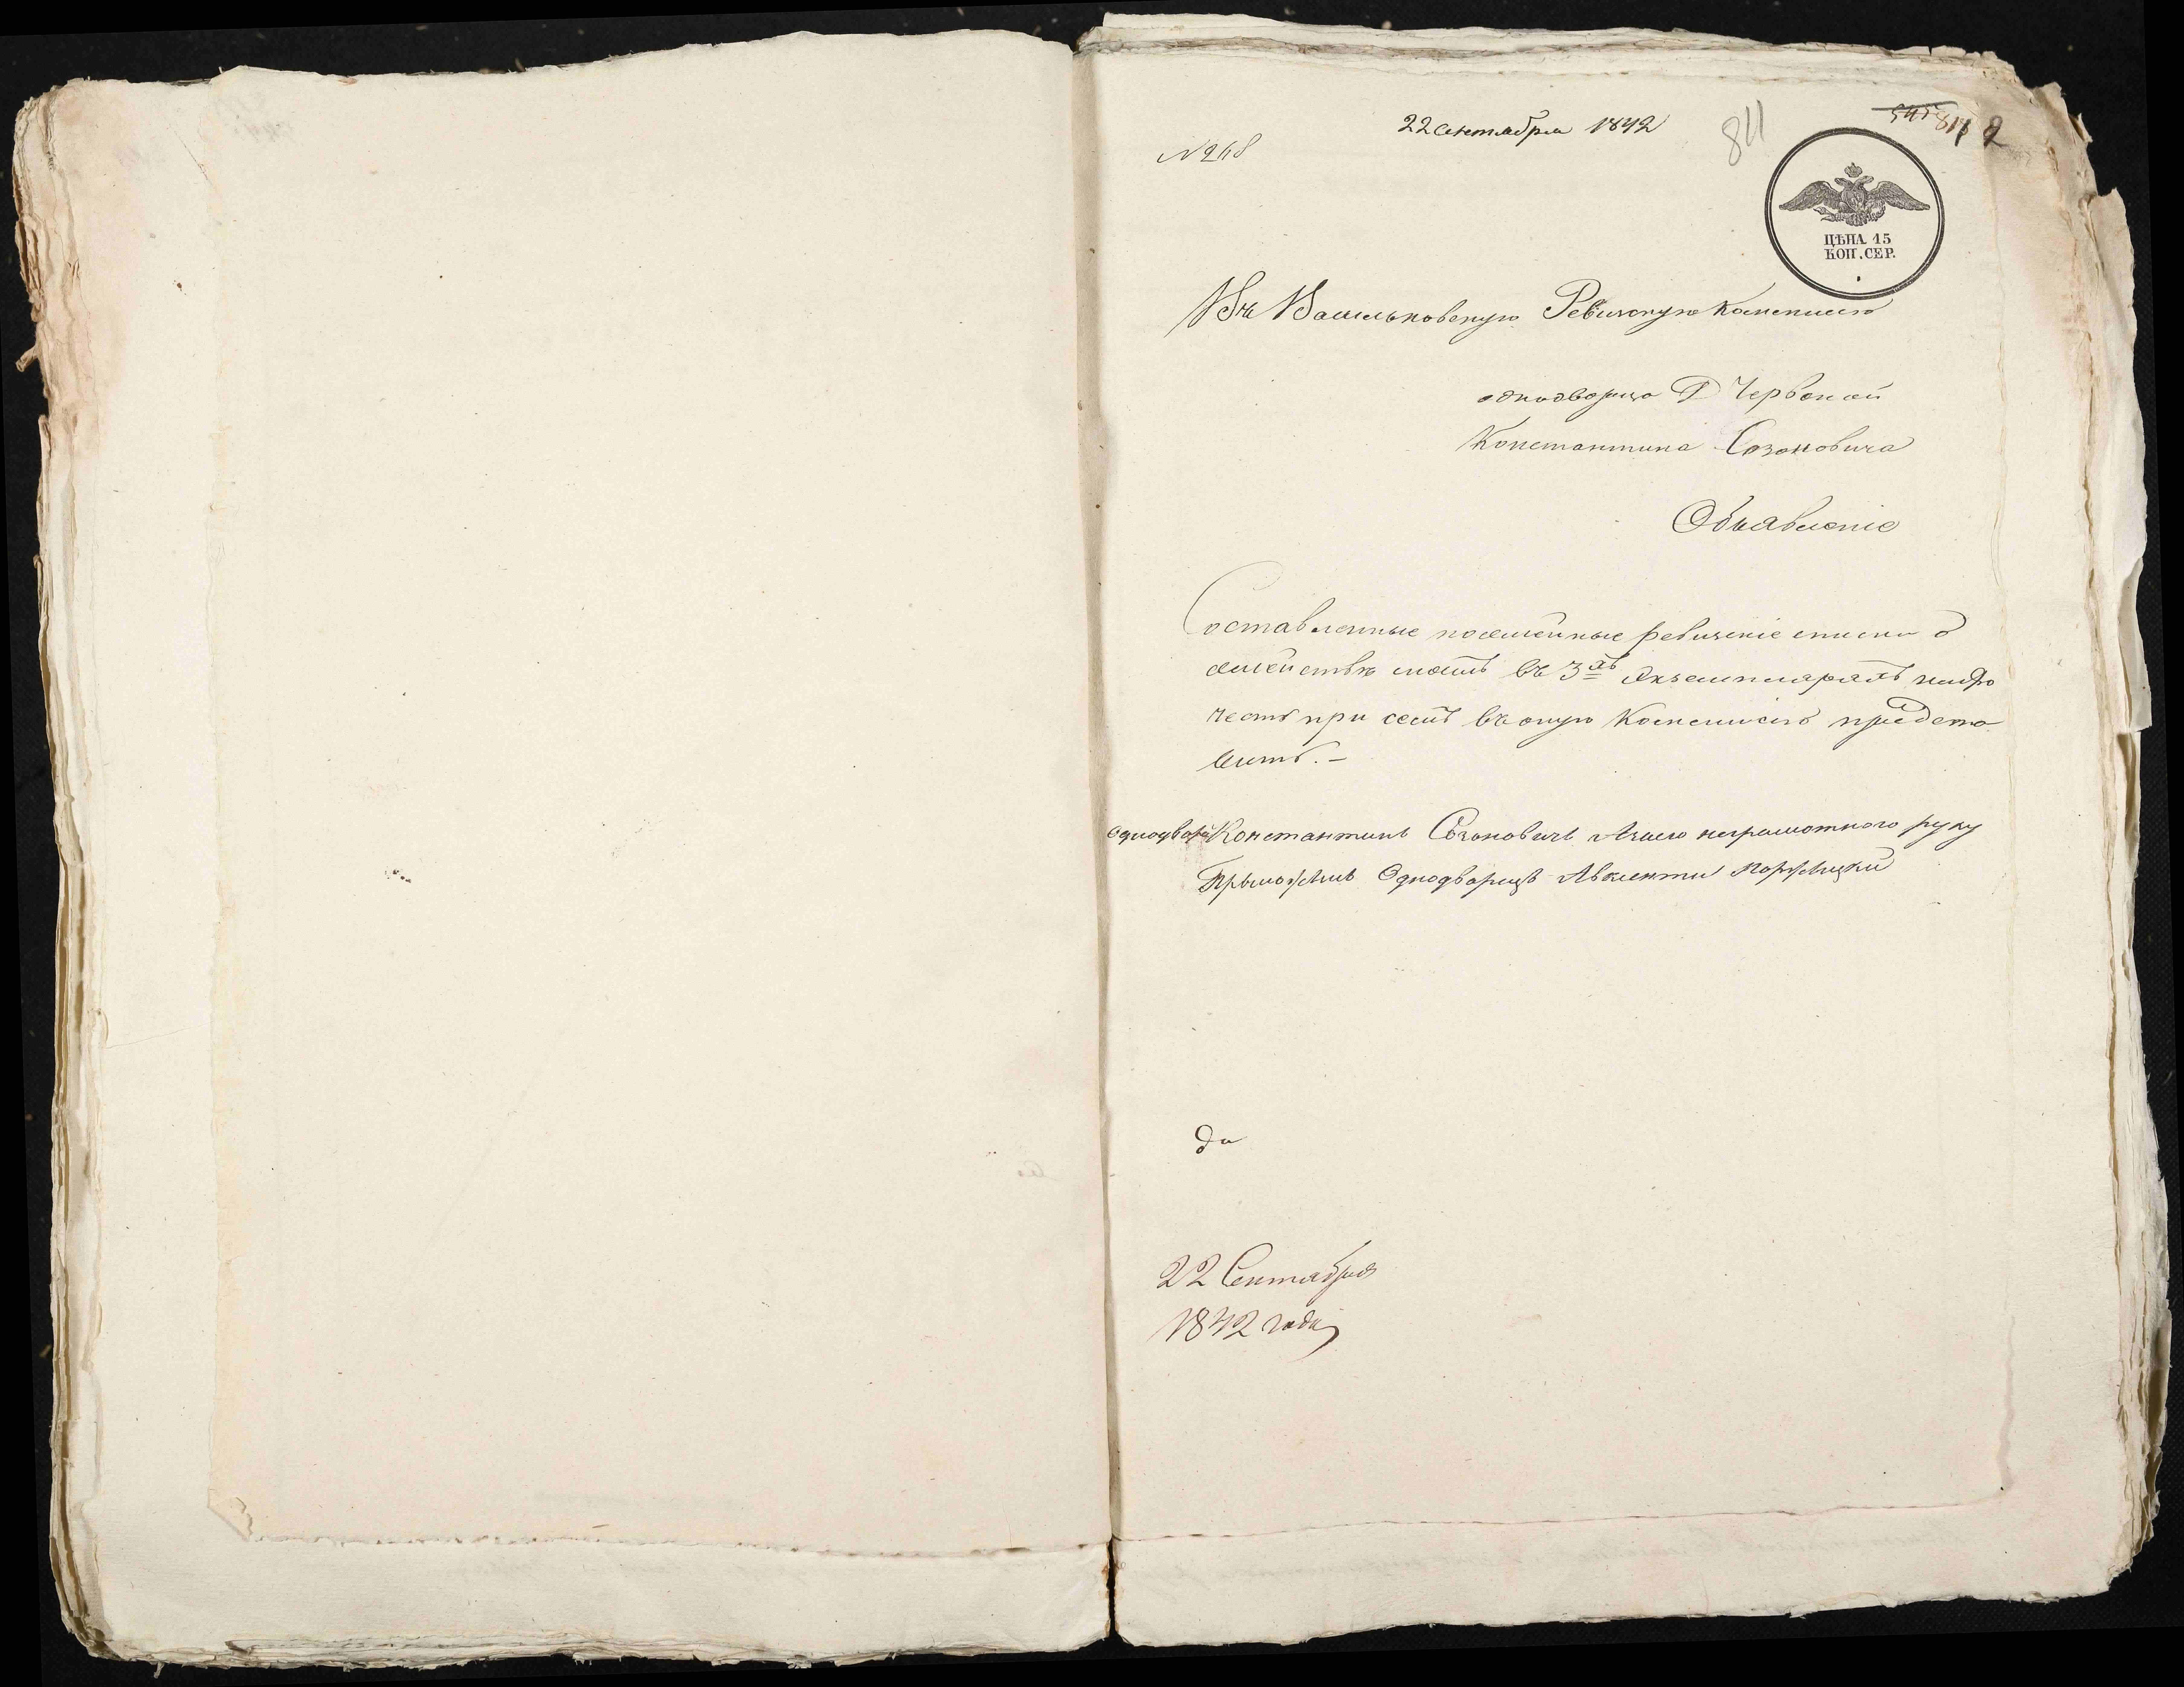 22 Сентября 1842
811
№ 268
ЦѢНА 15
КОП. СЕР.
Въ Васильковскую Ревизскую Коммисію
однодворца Д Червоной
Константина Созоновича
Объявленіе
Составленные посемейные ревизскіе списки о
семействѣ моемъ въ 3хъ экземплярахъ имѣю
честь при семъ въ оную Коммисію предста
вить.—
Однодворец Константинъ Созоновичъ А заего неграмотного руку
Прыложилъ Однодворецъ
да
22 Сентября
1842 года